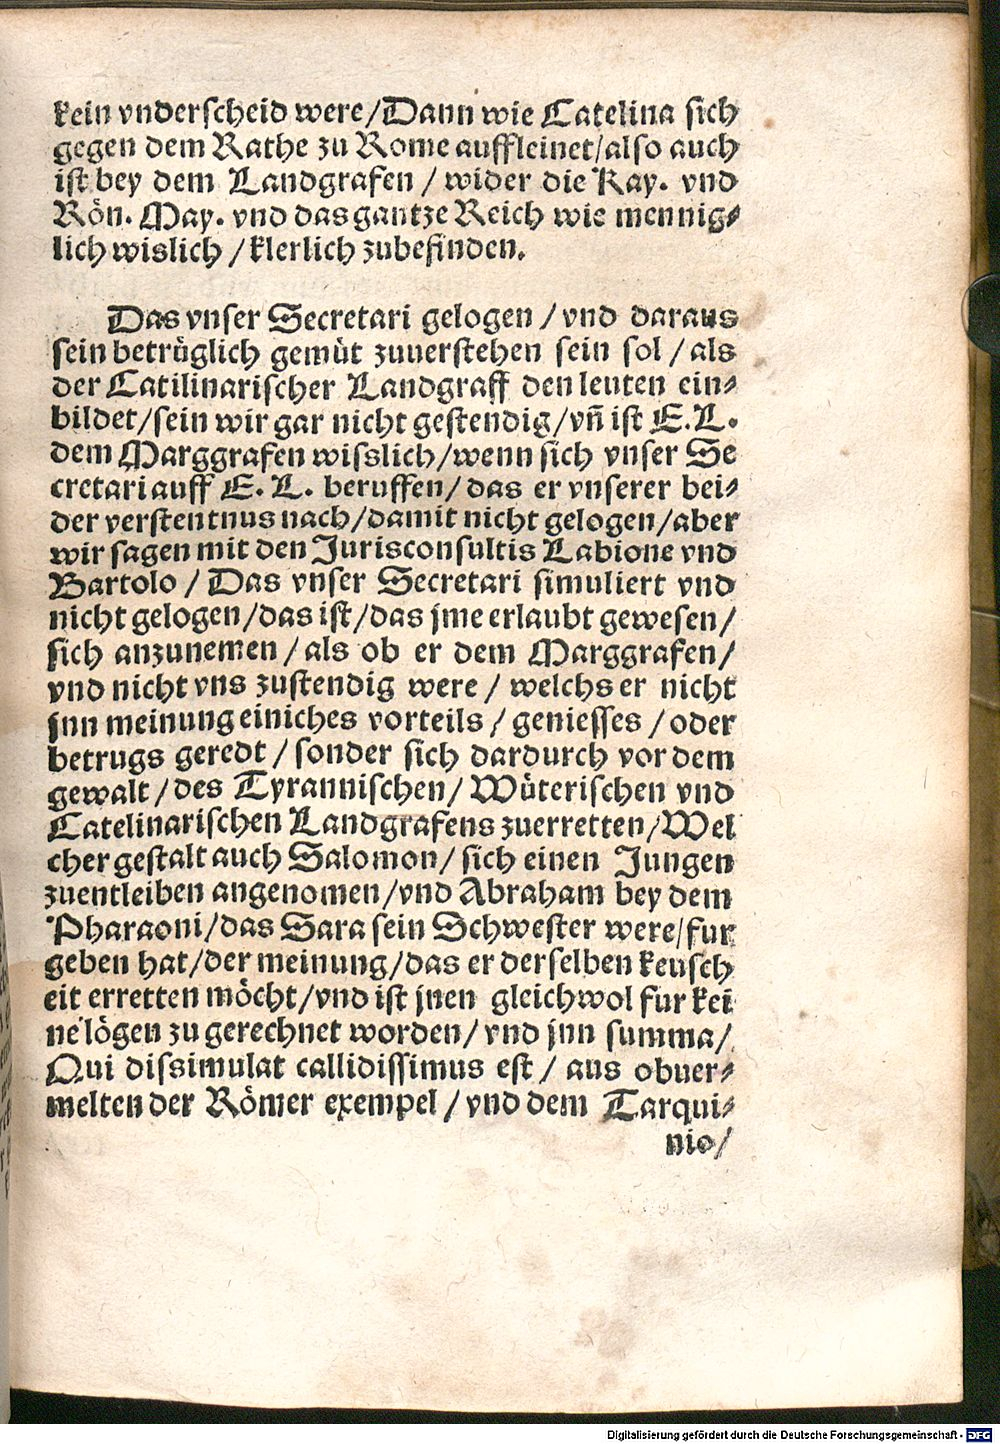 kein vnderscheid were/Dann wie Catelina sich
gegen dem Rathe zu Rome auffleinet/also auch
ist bey dem Landgrafen / wider die Kay. vnd
Rön. May. vnd das gantze Reich wie mennig⸗
lich wislich / klerlich zubefinden.
Das vnser Secretari gelogen / vnd daraus
sein betrüglich gemüt zuuerstehen sein sol / als
der Catilinarischer Landgraff den leuten ein⸗
bildet/sein wir gar nicht gestendig/vñ ist E.L.
dem Marggrafen wisslich/wenn sich vnser Se
cretari auff E. L. beruffen/ das er vnserer bei⸗
der verstentnus nach/damit nicht gelogen/aber
wir sagen mit den Jurisconsultis Labione vnd
Bartolo / Das vnser Secretari simuliert vnd
nicht gelogen/das ist/das jme erlaubt gewesen/
sich anzunemen / als ob er dem Marggrafen/
vnd nicht vns zustendig were / welchs er nicht
jnn meinung einiches vorteils / geniesses / oder
betrugs geredt / sonder sich dardurch vor dem
gewalt / des Tyrannischen/ Wüterischen vnd
Catelinarischen Landgrafens zuerretten/Wel
cher gestalt auch Salomon/ sich einen Jungen
zuentleiben angenomen/vnd Abraham bey dem
Pharaoni/das Sara sein Schwester were/fur
geben hat/der meinung/das er derselben keusch
eit erretten möcht/vnd ist jnen gleichwol fur kei
ne lögen zu gerechnet worden/ vnd jnn summa/
Qui dissimulat callidissimus est / aus obuer⸗
melten der Römer exempel / vnd dem Tarqui⸗
nio/
Digitalisierung gefördert durch die Deutsche Forschungsgemeinschaft - DFG